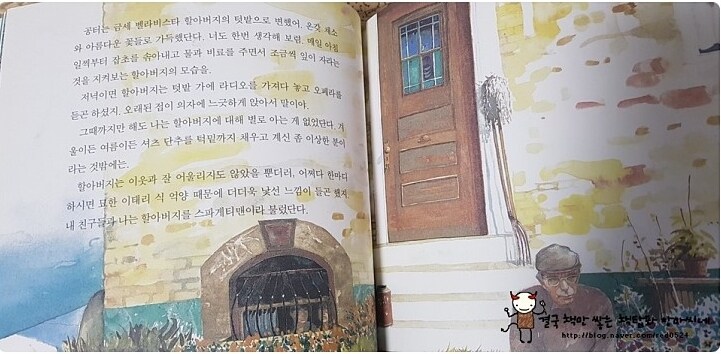 공터는 금세 벨라비스타 할아버지의 텃밭으로 변했어. 온갖 채소
와 아름다운 꽃들로 가득했단다. 너도 한번 생각해 보렴. 매일 아침
일찍부터 잡초를 솎아내고 물과 비료를 주면서 조금씩 잎이 자라는
것을 지켜보는 할아버지의 모습을.
저녁이면 할아버지는 텃밭 가에 라디오를 가져다 놓고 오페라를
듣곤 하셨지. 오래된 접이 의자에 느긋하게 앉아서 말이야.
그때까지만 해도 나는 할아버지에 대해 별로 아는 게 없었단다. 겨
울이든 여름이든 셔츠 단추를 턱밑까지 채우고 계신 좀 이상한 분이
라는 것밖에는.
할아버지는 이웃과 잘 어울리지도 않았을 뿐더러, 어쩌다 한마디
하시면 묘한 이태리 식 억양 때문에 더더욱 낯선 느낌이 들곤 했지.
내 친구들과 나는 할아버지를 스파게티맨이라 불렀단다.
결국 책만 쌓은 책탑만
http://blog.naver.com/red0524